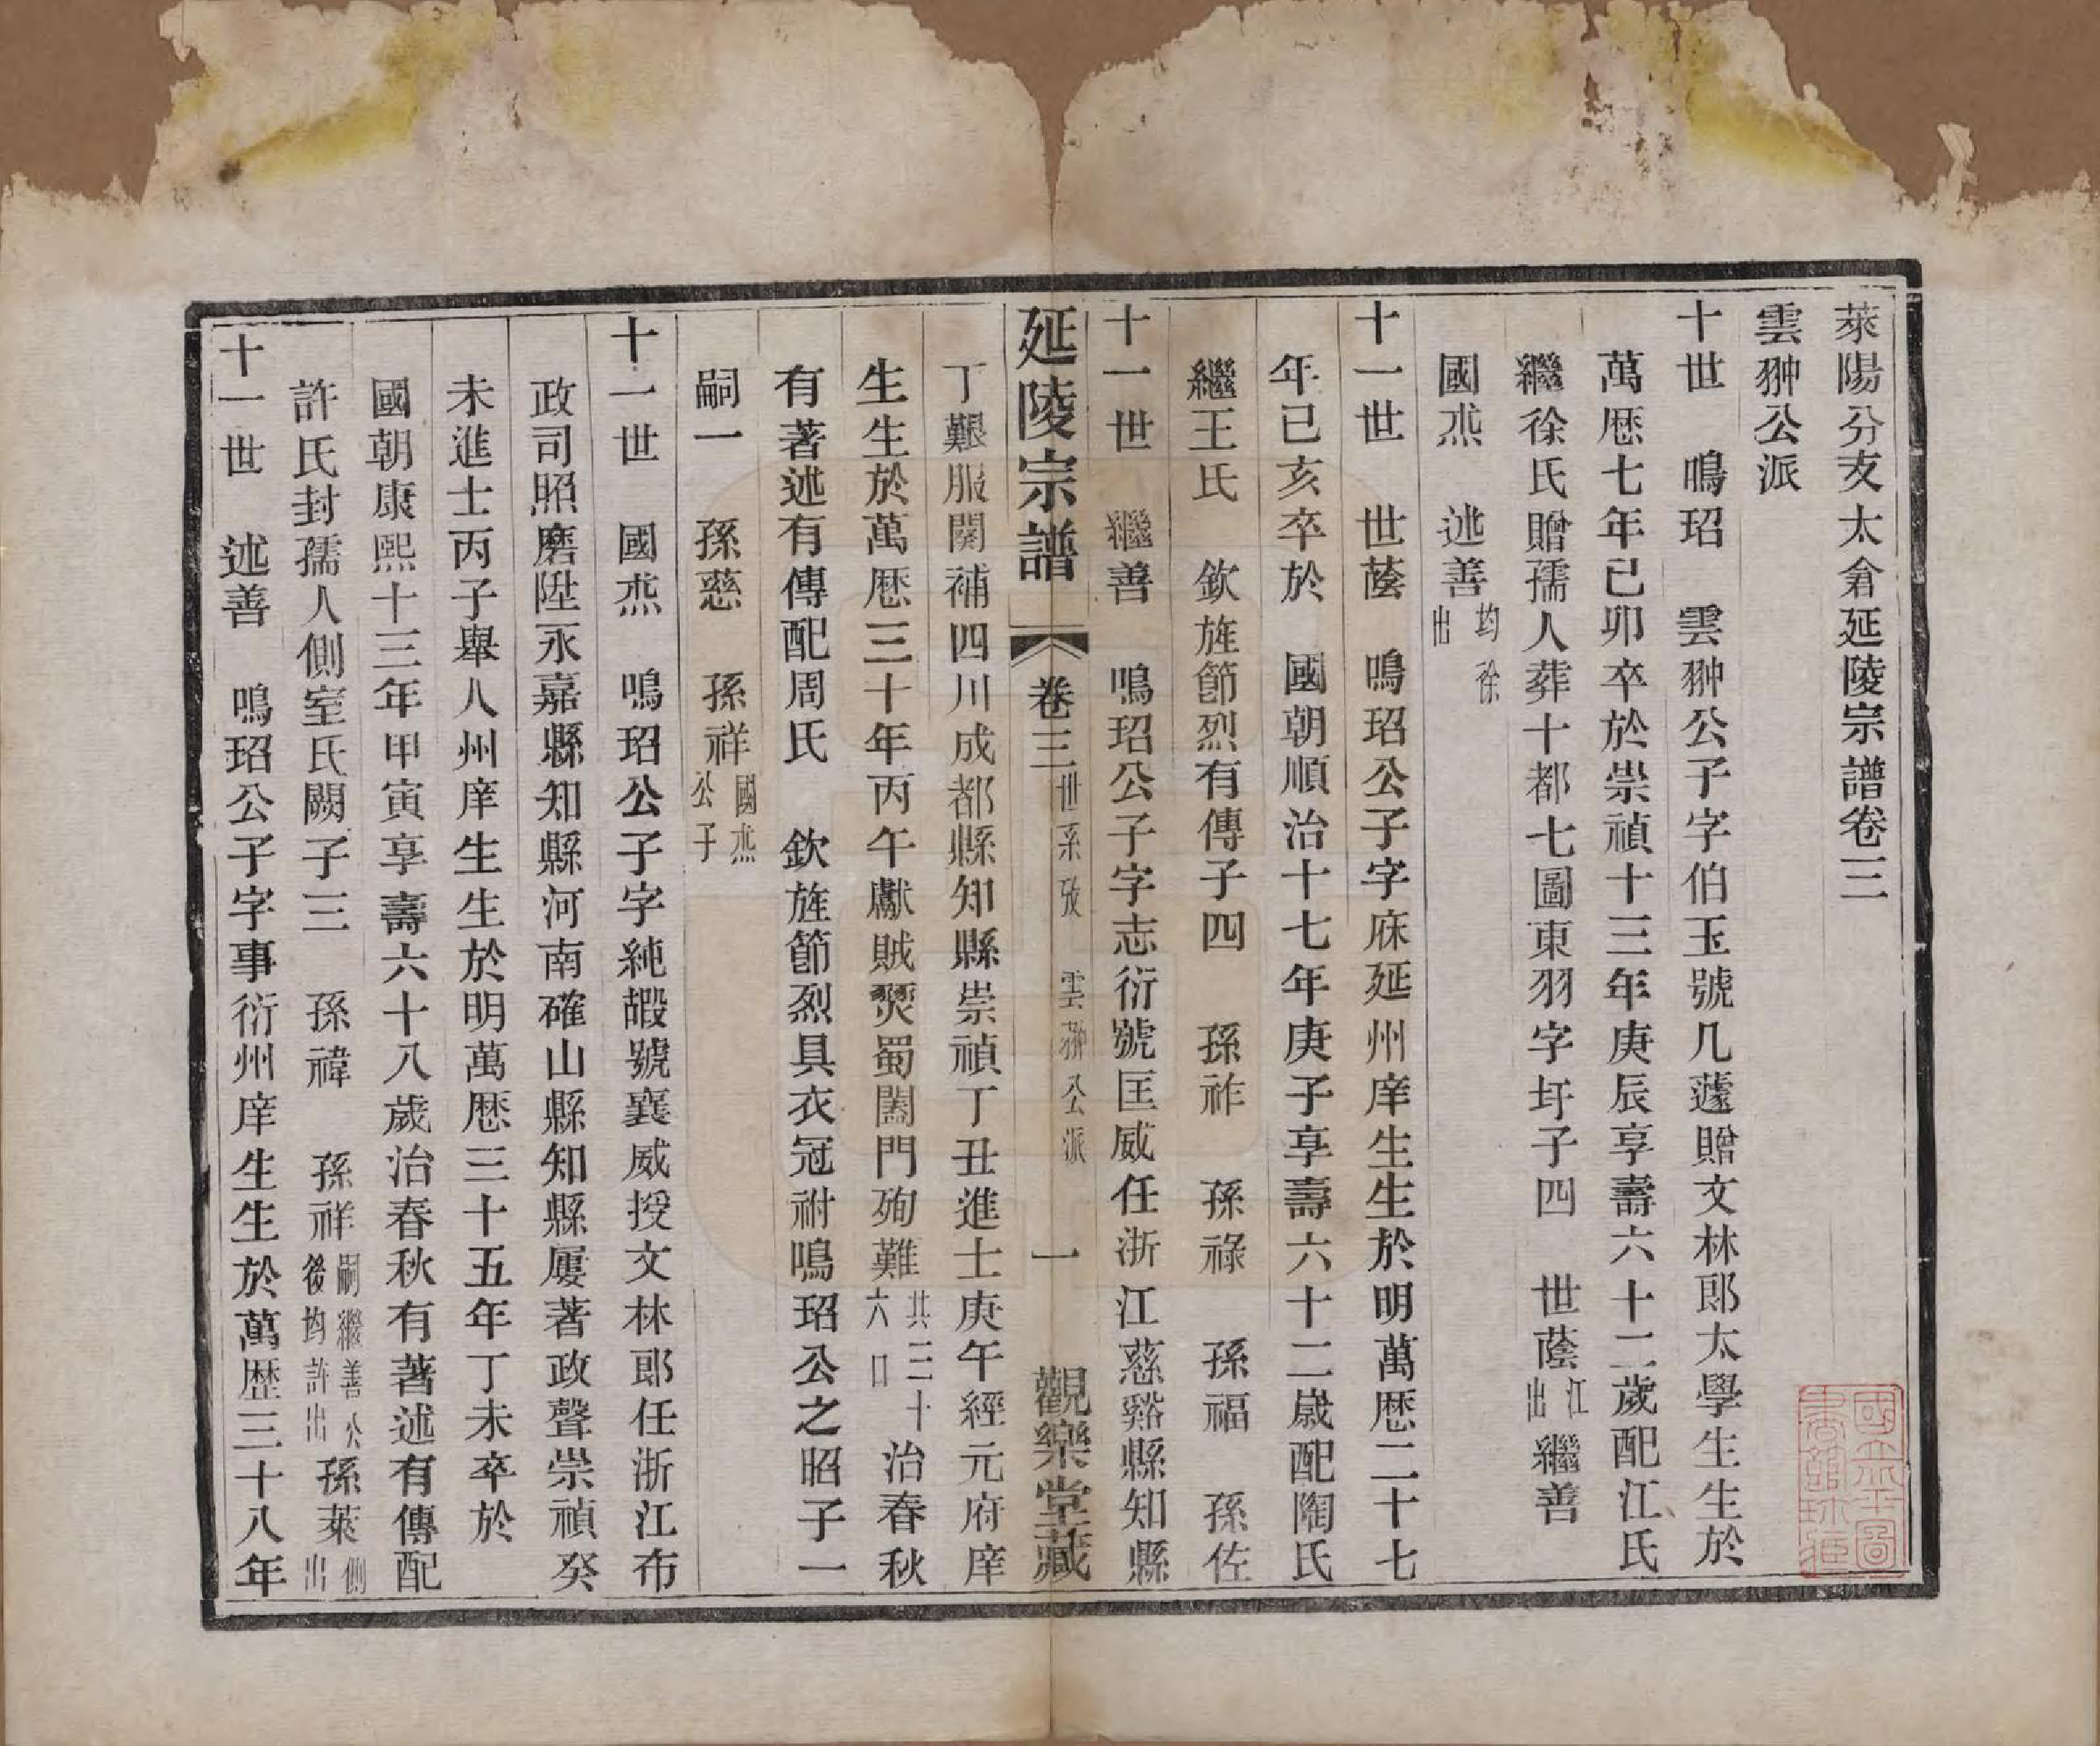 萊陽分支太倉延陵宗譜卷三
雲翀公派
十世　鳴玿　雲翀公子字伯玉號几蘧贈文林郎太學生生於
萬厯七年己卯卒於崇禎十三年庚辰享壽六十二歲配江氏
繼徐氏贈孺人葬十都七圖東羽字圩子四　世蔭江出　繼善
國烝　述善均徐出
十一世　世蔭　鳴玿公子字庥延州庠生生於明萬厯二十七
年己亥卒於　國朝順治十七年庚子享壽六十二歲配陶氏
繼王氏　欽旌節烈有傳子四　孫祚　孫祿　孫福　孫佐
十一世　繼善　鳴玿公子字志衍號匡威任浙江慈谿縣知縣
延陵宗譜　卷三世系攷　雲翀公派　一　觀樂堂藏
丁艱服闋補四川成都縣知縣崇禎丁丑進士庚午經元府庠
生生於萬厯三十年丙午獻賊燹蜀闔門殉難共三十六口治春秋
有著述有傳配周氏　欽旌節烈具衣冠祔鳴玿公之昭子一
嗣一　孫慈　孫祥國烝公子
十一世　國烝　鳴玿公子字純嘏號襄威授文林郎任浙江布
政司照磨陞永嘉縣知縣河南確山縣知縣屢著政聲崇禎癸
未進士丙子舉人州庠生生於明萬厯三十五年丁未卒於
國朝康熙十三年甲寅享壽六十八歲治春秋有著述有傳配
許氏封孺人側室氏闕子三　孫禕　孫祥嗣繼善公後均許出孫萊側出
十一世　述善　鳴玿公子字事衍州庠生生於萬歷三十八年
國立北平圖書館珍藏